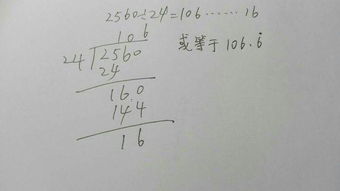 2560÷24=106……16
106
24√2560
24
160
144
16
或等于 106.6̇